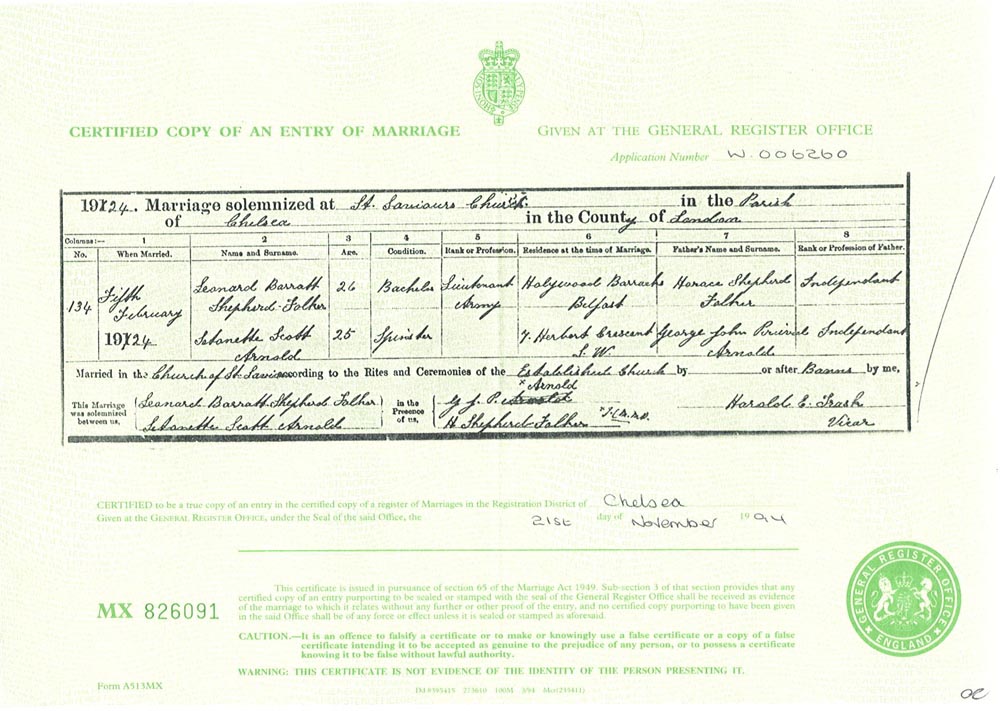 CERTIFIED COPY OF AN ENTRY OF MARRIAGE
GIVEN AT THE GENERAL REGISTER OFFICE
Application Number W.006260
19124. Marriage solemnized at St. Saviours Church in the Parish
of Chelsea in the County of London
Columns:— 1 2 3 4 5 6 7 8
No. When Married. Name and Surname. Age. Condition. Rank or Profession. Residence at the time of Marriage. Father's Name and Surname. Rank or Profession of Father.
134 Fifth February 19124 Leonard Barratt Shepherd-Folker 26 Bachelor Lieutenant Army Holywood Barracks Belfast Horace Shepherd Folker Independant
Scott Arnold 25 Spinster 7. Herbert Crescent S.W. George John Arnold Independant
Married in the Church of St. according to the Rites and Ceremonies of the Established Church by or after Banns by me,
x Arnold
This Marriage was solemnized between us, Leonard Barratt Shepherd Folker in the Presence of us, G. J. P. Arnold Harold E.
Scott Arnold H Shepherd-Folker Vicar
CERTIFIED to be a true copy of an entry in the certified copy of a register of Marriages in the Registration District of Chelsea
Given at the GENERAL REGISTER OFFICE, under the Seal of the said Office, the 21st day of November 1994
This certificate is issued in pursuance of section 65 of the Marriage Act 1949. Sub-section 3 of that section provides that any
certified copy of an entry purporting to be sealed or stamped with the seal of the General Register Office shall be received as evidence
of the marriage to which it relates without any further or other proof of the entry, and no certified copy purporting to have been given
in the said Office shall be of any force or effect unless it is sealed or stamped as aforesaid.
MX 826091
CAUTION.—It is an offence to falsify a certificate or to make or knowingly use a false certificate or a copy of a false
certificate intending it to be accepted as genuine to the prejudice of any person, or to possess a certificate
knowing it to be false without lawful authority.
WARNING: THIS CERTIFICATE IS NOT EVIDENCE OF THE IDENTITY OF THE PERSON PRESENTING IT.
GENERAL REGISTER OFFICE
ENGLAND
Form A513MX